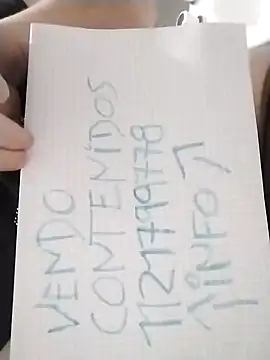 VENDO
CONTENIDOS
1121799778
¡INFO?